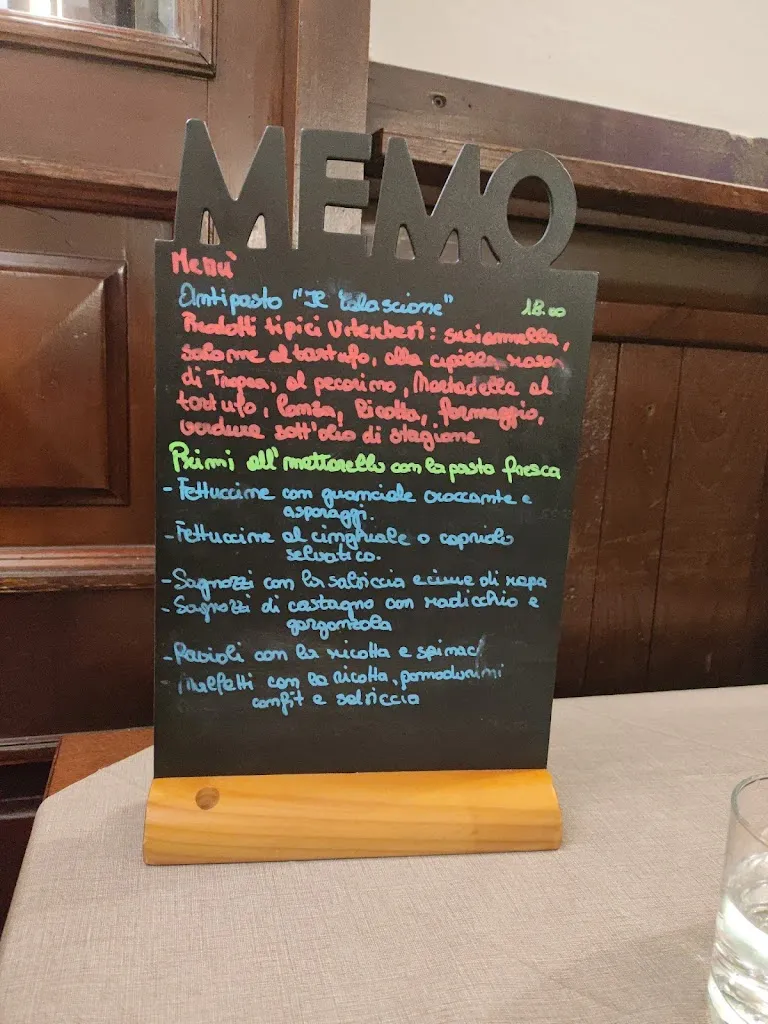 MEMO
Menù
Antipasto "Il Calascione" 18.00
Prodotti tipici Viterbesi: susianella,
salame al tartufo, alla cipolla rossa
di Tropea, al pecorino, Mortadella al
tartufo, Lonza, Ricotta, formaggio,
verdure sott'olio di stagione
Primi all'mattarello con la pasta fresca
- Fettuccine con guanciale croccante e
asparagi.
- Fettuccine al cinghiale o capriolo
selvatico.
- Sagnozzi con la salsiccia e cime di rapa
- Sagnozzi di castagno con radicchio e
gorgonzola
- Ravioli con la ricotta e spinaci
- Malfetti con la ricotta, pomodorini
confit e salsiccia